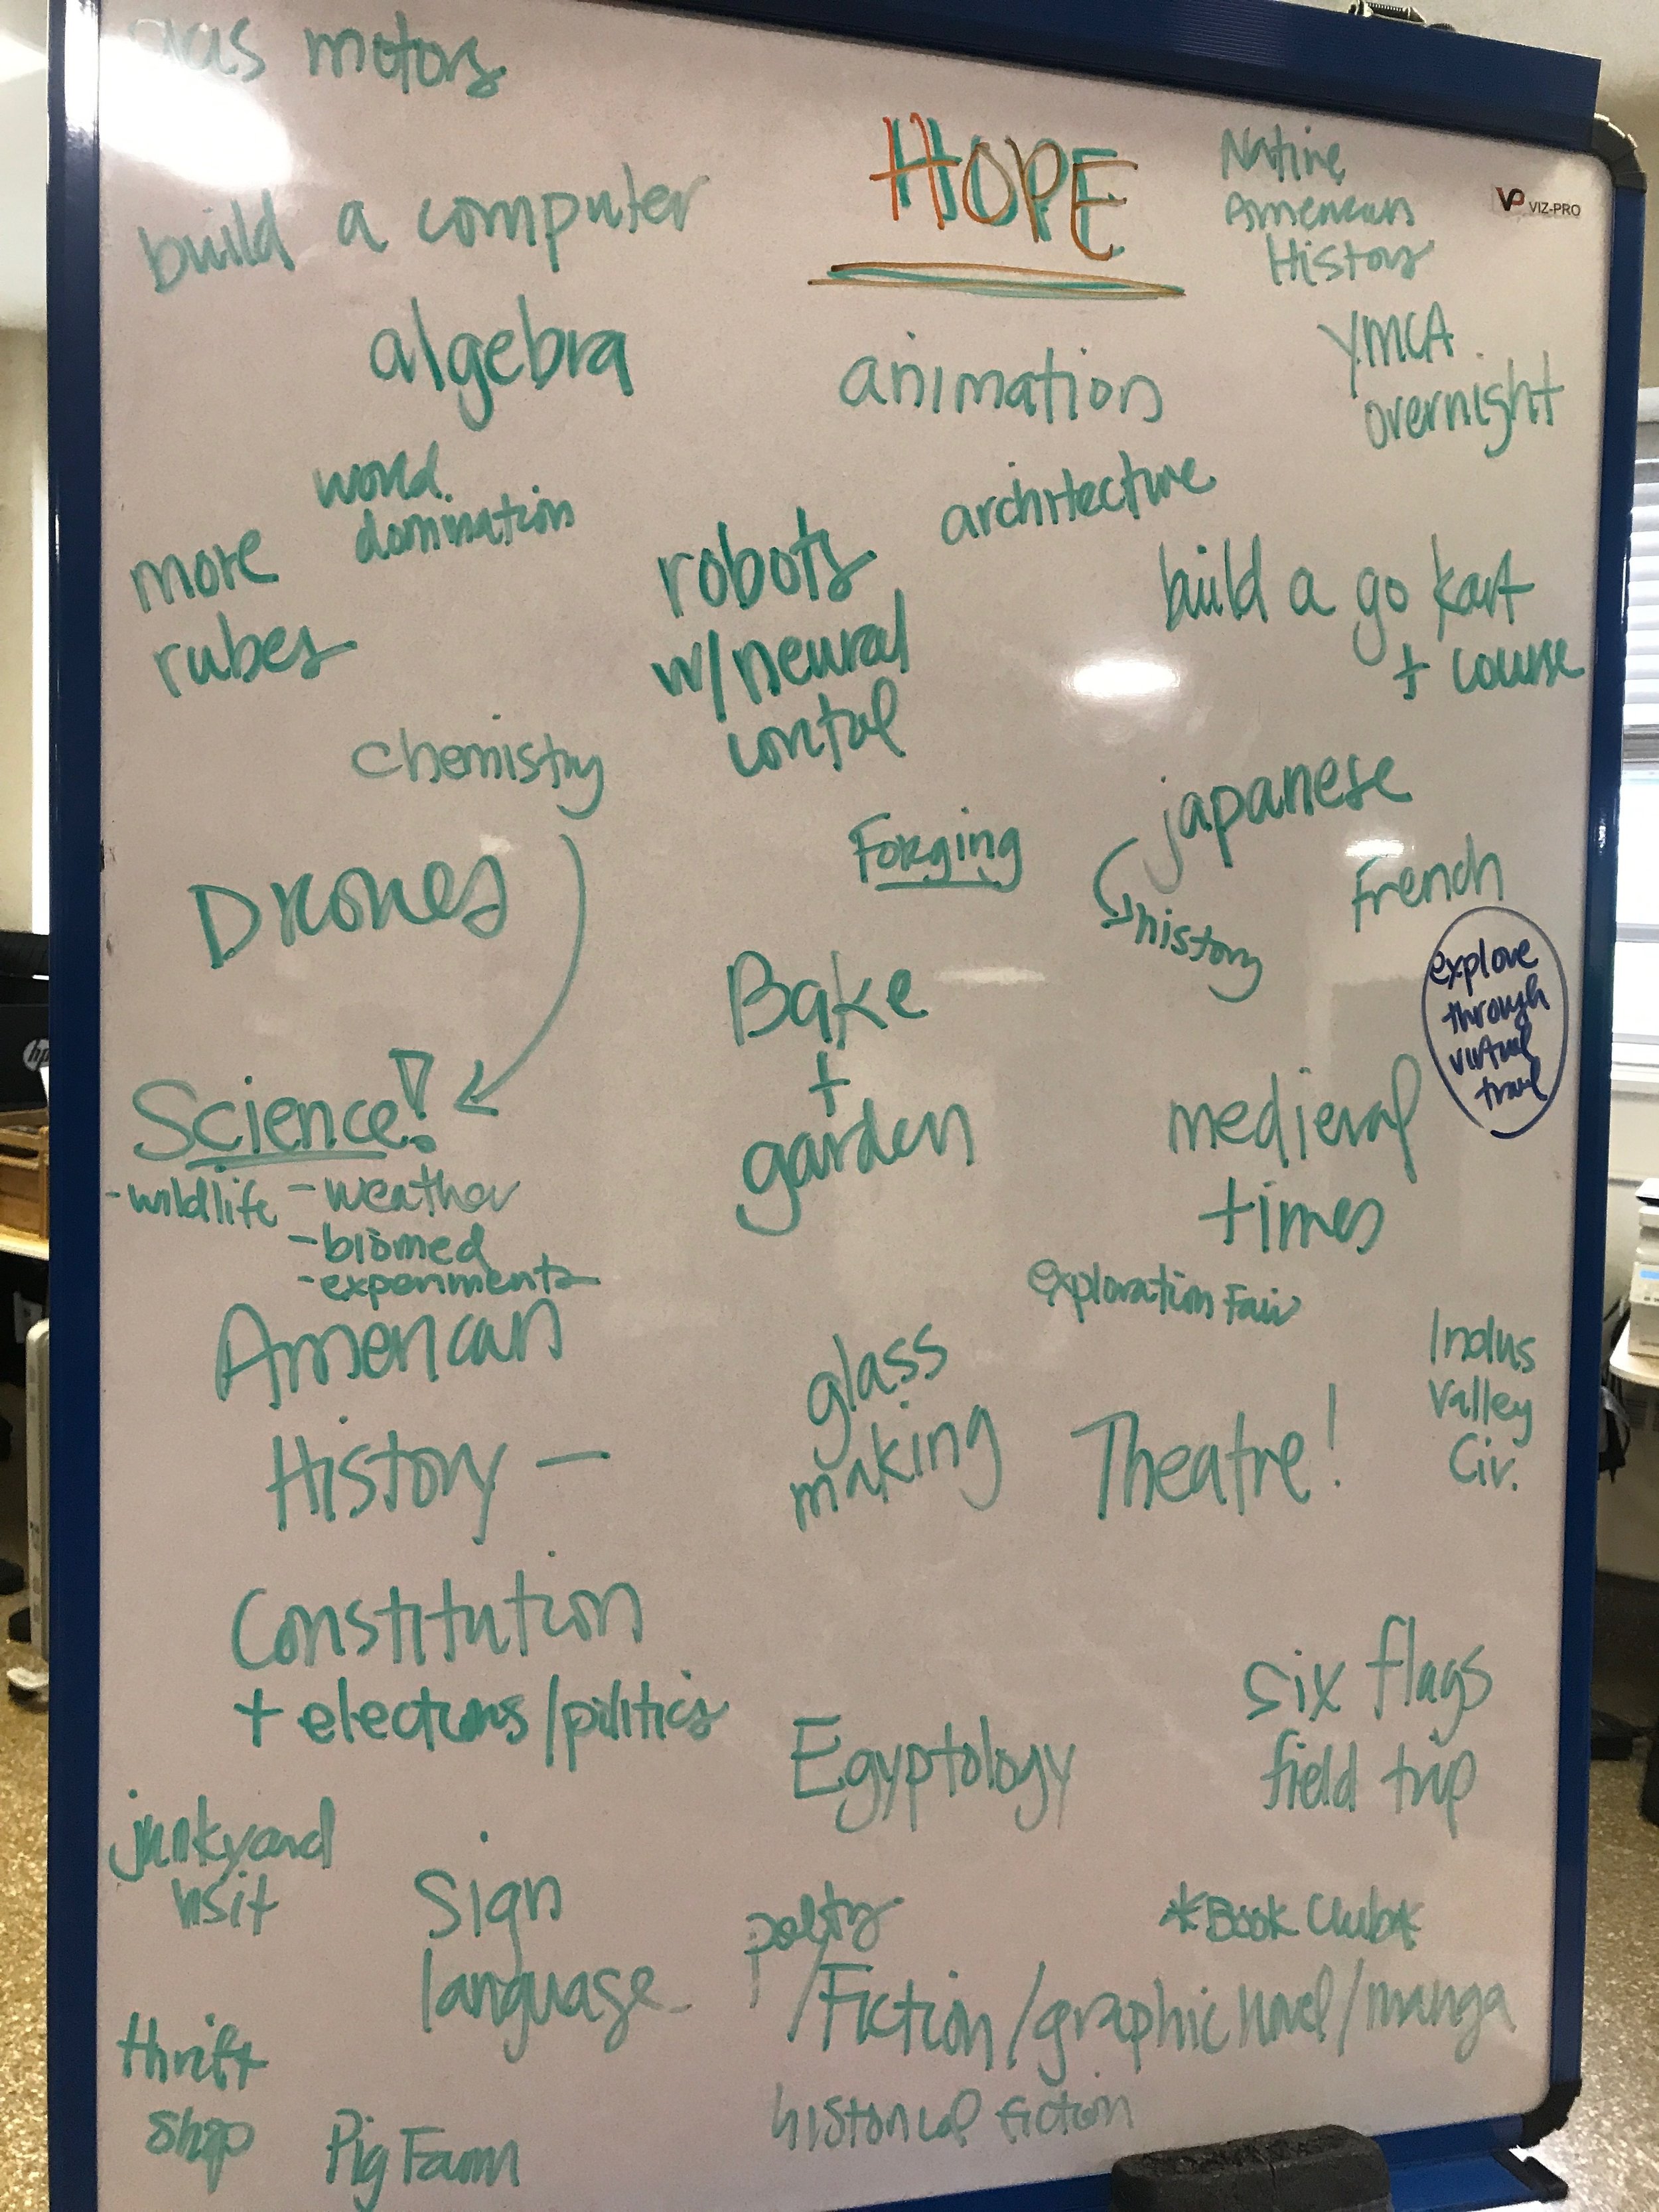 gas motors
HOPE
Native
American
History
VP VIZ-PRO
build a computer
algebra
animation
YMCA
overnight
world
domination
architecture
more
rubes
robots
w/neural
contol
build a go kart
+ course
chemistry
Forging
japanese
history
French
Drones
explore
through
virtual
travel
Bake
+
garden
hp
Science!
-wildlife
-weather
-biomed
-experiments
medieval
times
exploration Fair
American
History -
glass
making
Theatre!
Indus
Valley
Civ.
Constitution
+ elections/politics
Egyptology
six flags
field trip
junkyard
visit
Sign
language
poetry
*Book Club*
/Fiction/graphic novel/manga
historical fiction
thrift
shop
Pig Farm